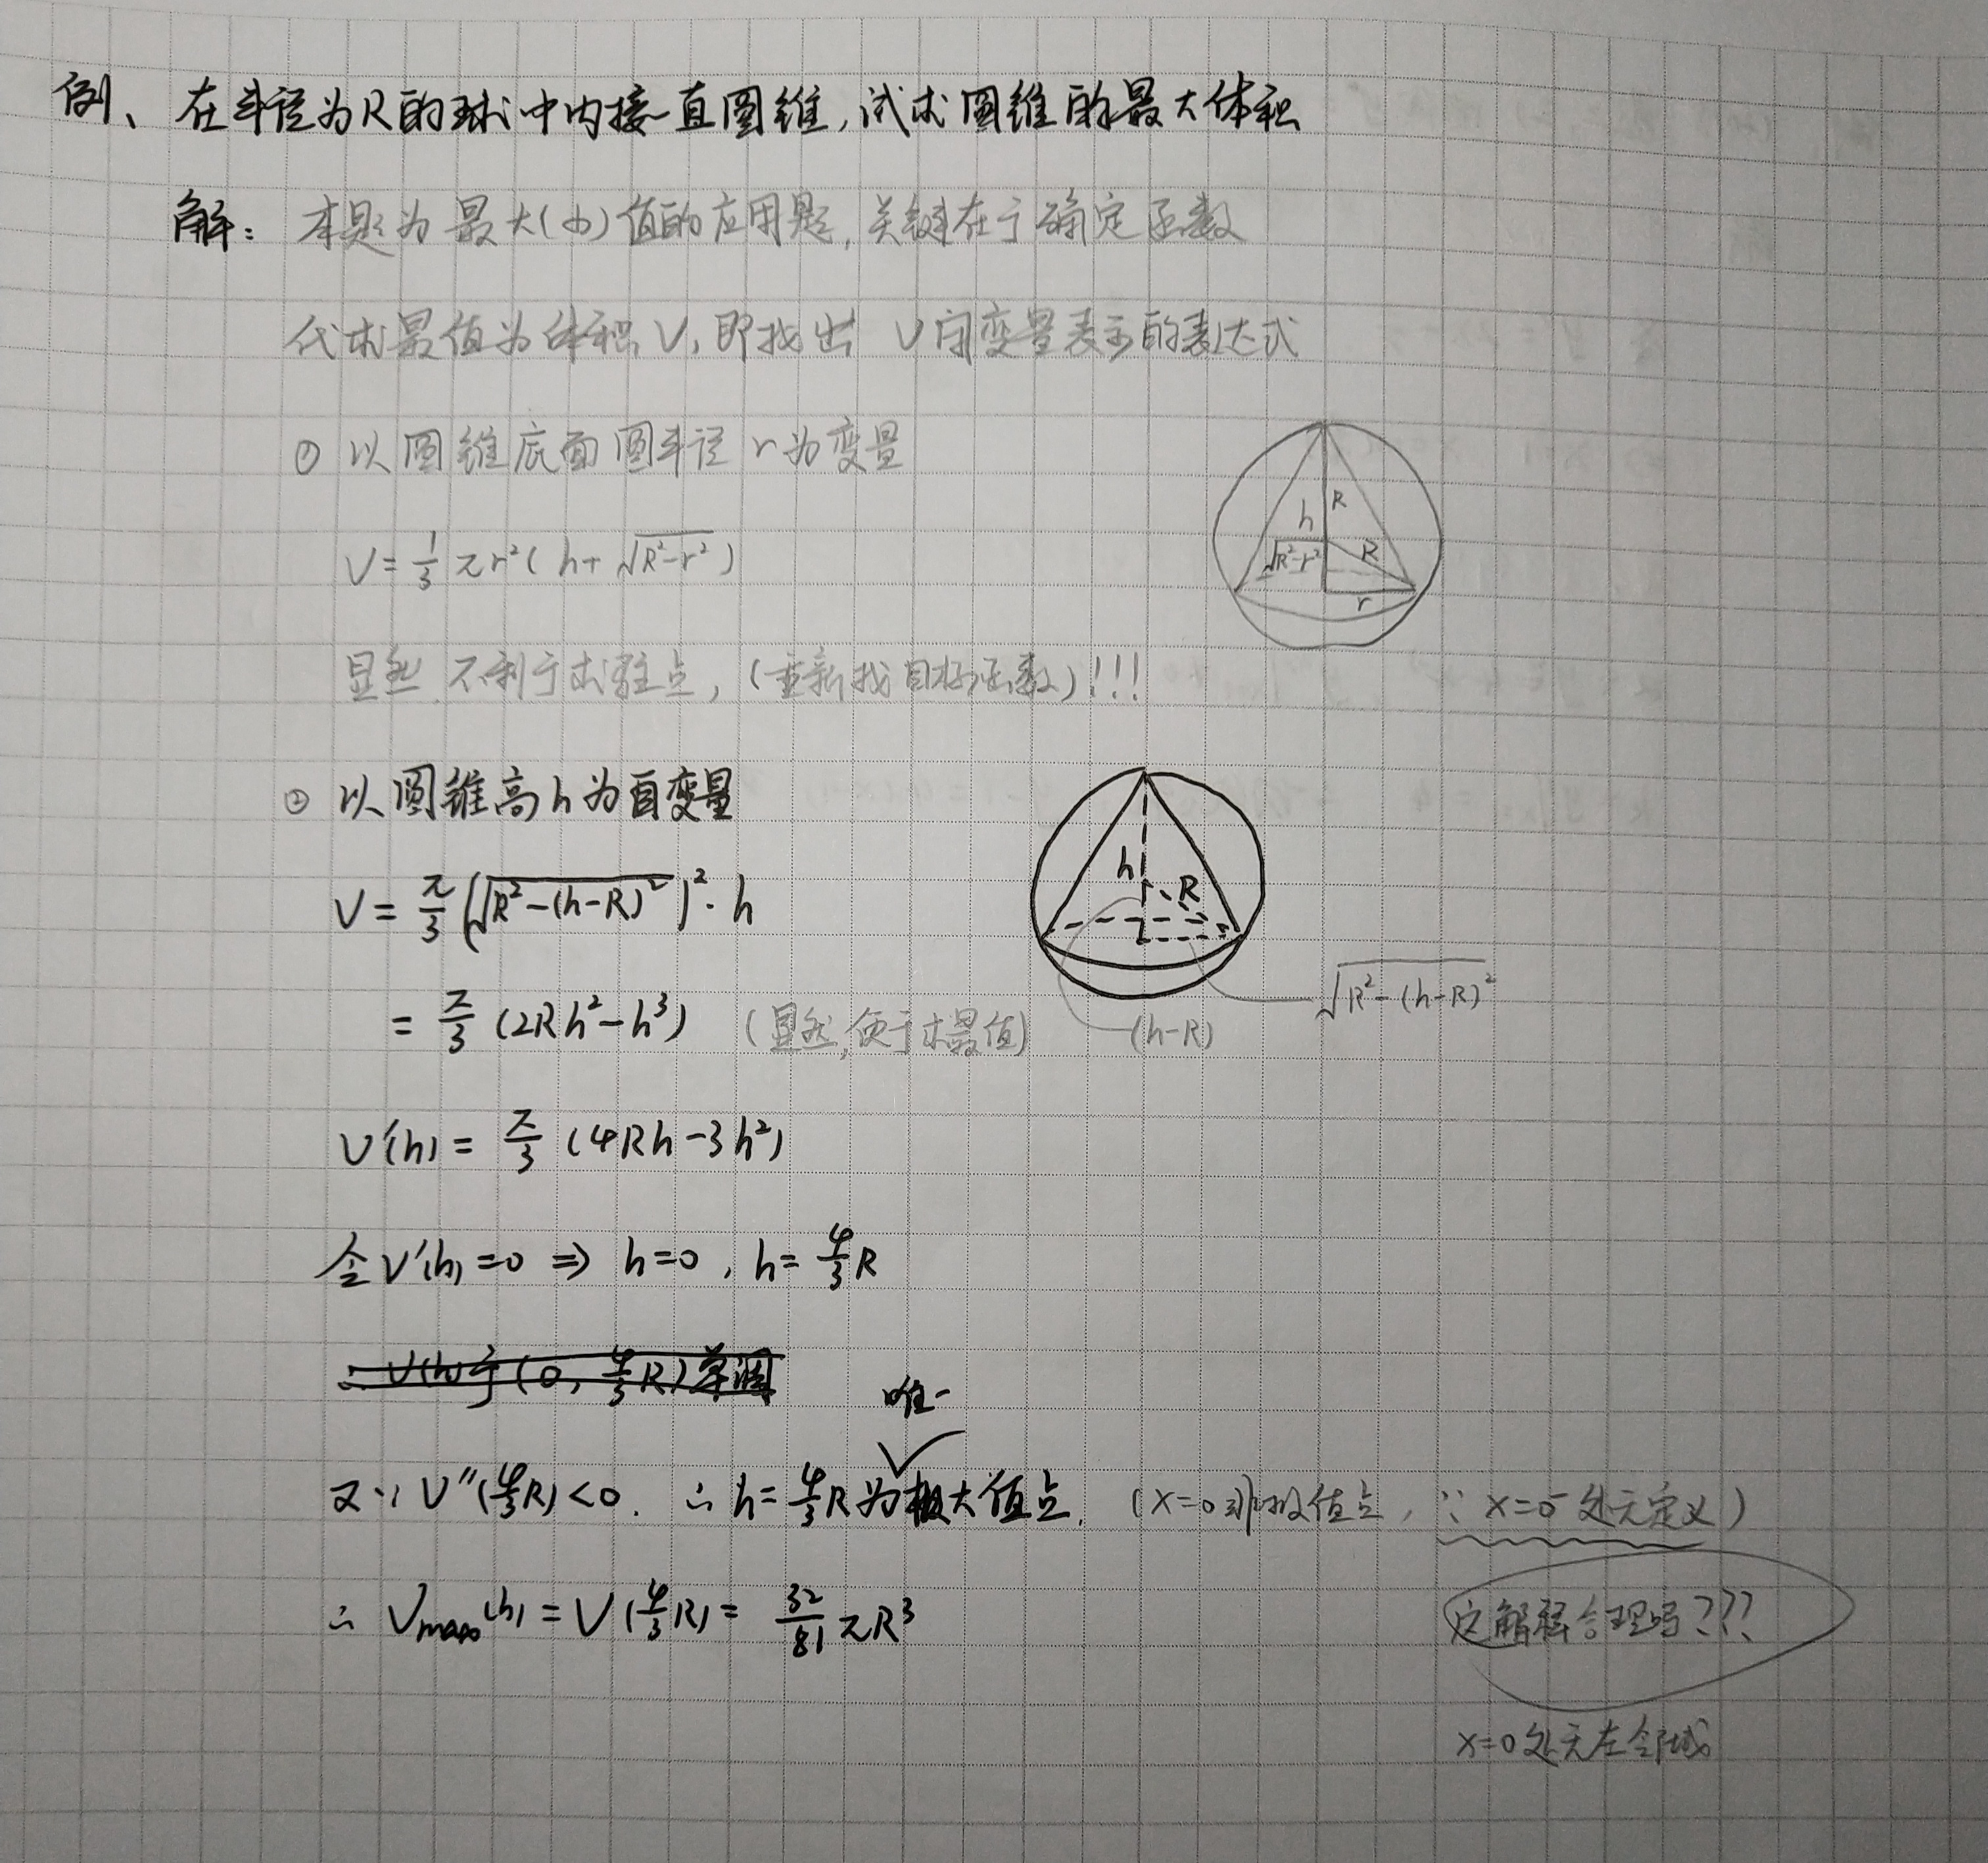 例、在半径为R的球中内接一直圆锥,试求圆锥的最大体积
解: 本题为最大(小)值的应用题,关键在于确定函数
代求最值为体积V,即找出 V用变量表示的表达式
① 以圆锥底面圆半径 r为变量
V = 1/3 πr²( h+ √(R²-r²) )
h R
√(R²-r²) R
r
显然,不利于求驻点,(重新找目标函数)!!!
② 以圆锥高h为自变量
V = π/3 (√(R²-(h-R)²))²·h
h R
√(R²-(h-R)²)
= π/3 (2Rh²-h³) (显然,便于求最值)
(h-R)
V'(h) = π/3 (4Rh-3h²)
令V'(h)=0 ⇒ h=0, h=4/3R
∴ V(h)于(0, 4/3R)单调
唯一
又∵ V''(4/3R)<0. ∴ h=4/3R为极大值点. (x=0非极值点, ∵ x=0⁻处无定义)
∴ Vmax(h) = V(4/3R) = 32/81 πR³
这解释合理吗???
x=0处无左邻域